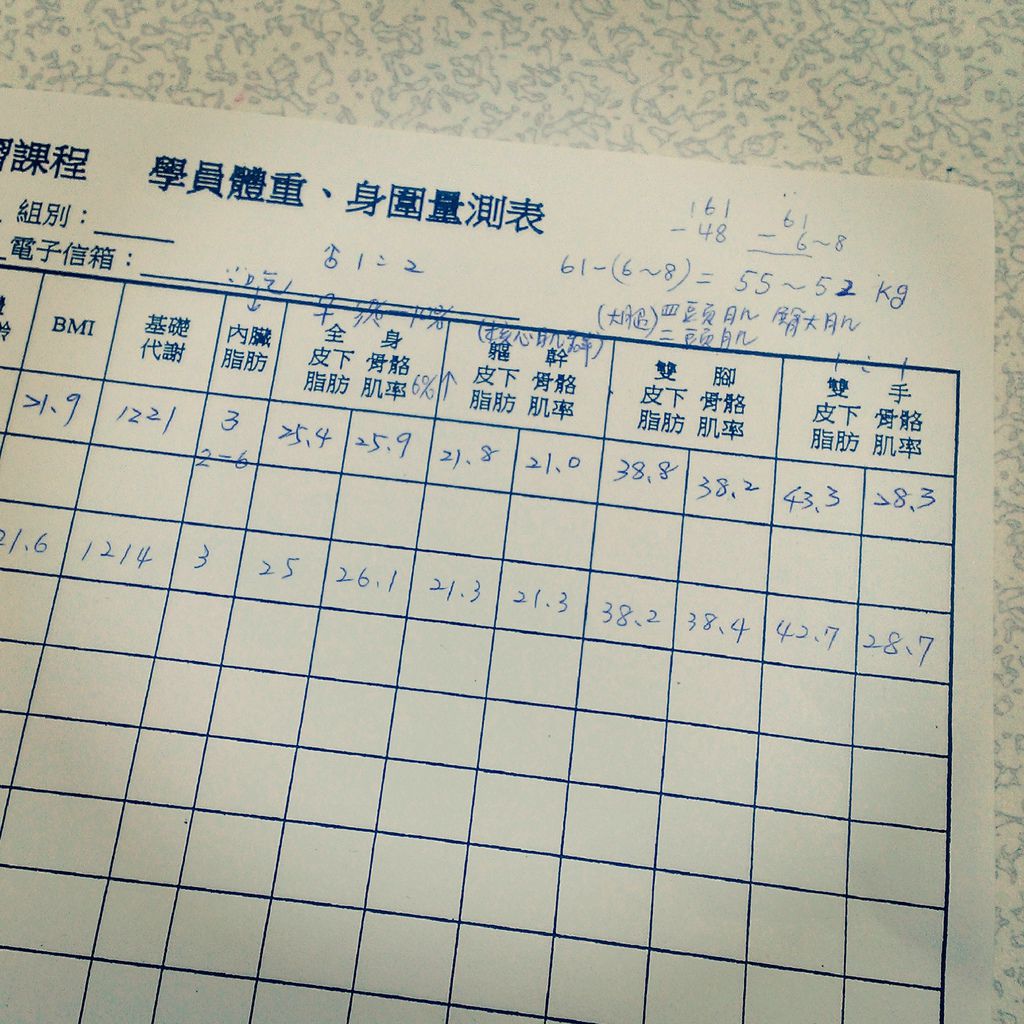 習課程 學員體重、身圍量測表
組別：
電子信箱：
161
- 48
61
- 6~8
61-(6~8) = 55~52 kg
(大腿)四頭肌 臀大肌
二頭肌
(核心肌群)
齡 BMI 基礎代謝 內臟脂肪 全身 皮下脂肪 骨骼肌率 6%↑ 軀幹 皮下脂肪 骨骼肌率 雙腳 皮下脂肪 骨骼肌率 雙手 皮下脂肪 骨骼肌率
21.9 1221 3 25.4 25.9 21.8 21.0 38.8 38.2 43.3 28.3
2-6
21.6 1214 3 25 26.1 21.3 21.3 38.2 38.4 42.7 28.7